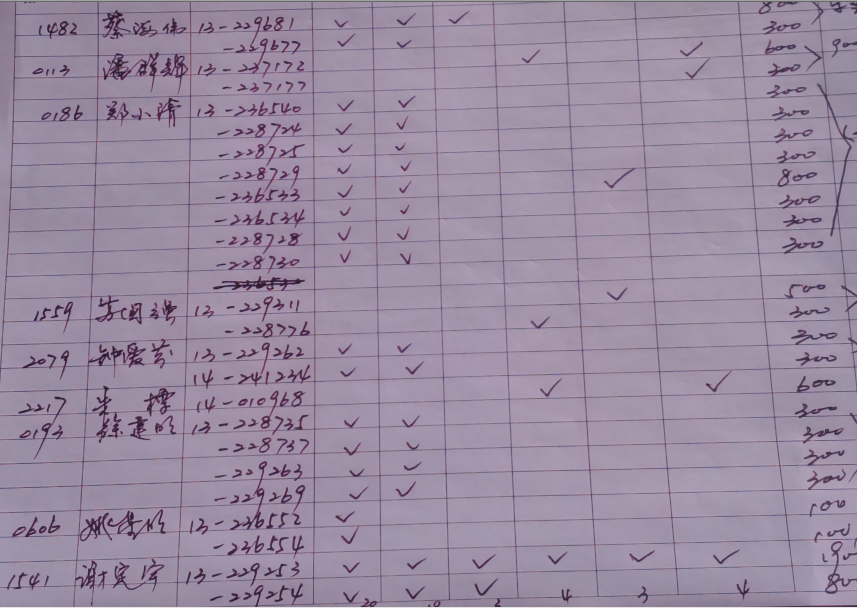 800
1482 蔡 伟 13-229681 ✓ ✓ ✓ 300
-229677 ✓ ✓ 600
0113 潘 辉 13-237172 ✓ ✓ 300
-237177 ✓ 300
0186 郑小清 13-236540 ✓ ✓ 300
-228724 ✓ ✓ 300
-228725 ✓ ✓ 300
-228729 ✓ ✓ ✓ 800
-236533 ✓ ✓ 300
-236534 ✓ ✓ 300
-228728 ✓ ✓ 300
-228730 ✓ ✓
1559 13-229311 ✓ 500
-228776 ✓ 300
2079 钟爱芬 13-229262 ✓ ✓ 300
14-241234 ✓ ✓ 300
2217 14-010968 ✓ ✓ 600
0193 徐建明 13-228735 ✓ ✓ 300
-228737 ✓ ✓ 300
-229263 ✓ ✓ 300
-229269 ✓ ✓ 300
0606 姚 明 13-236552 ✓ 100
-236554 ✓ 100
1541 谢定宇 13-229253 ✓ ✓ ✓ ✓ ✓ ✓
-229254 ✓ ✓ ✓ 4 3 4